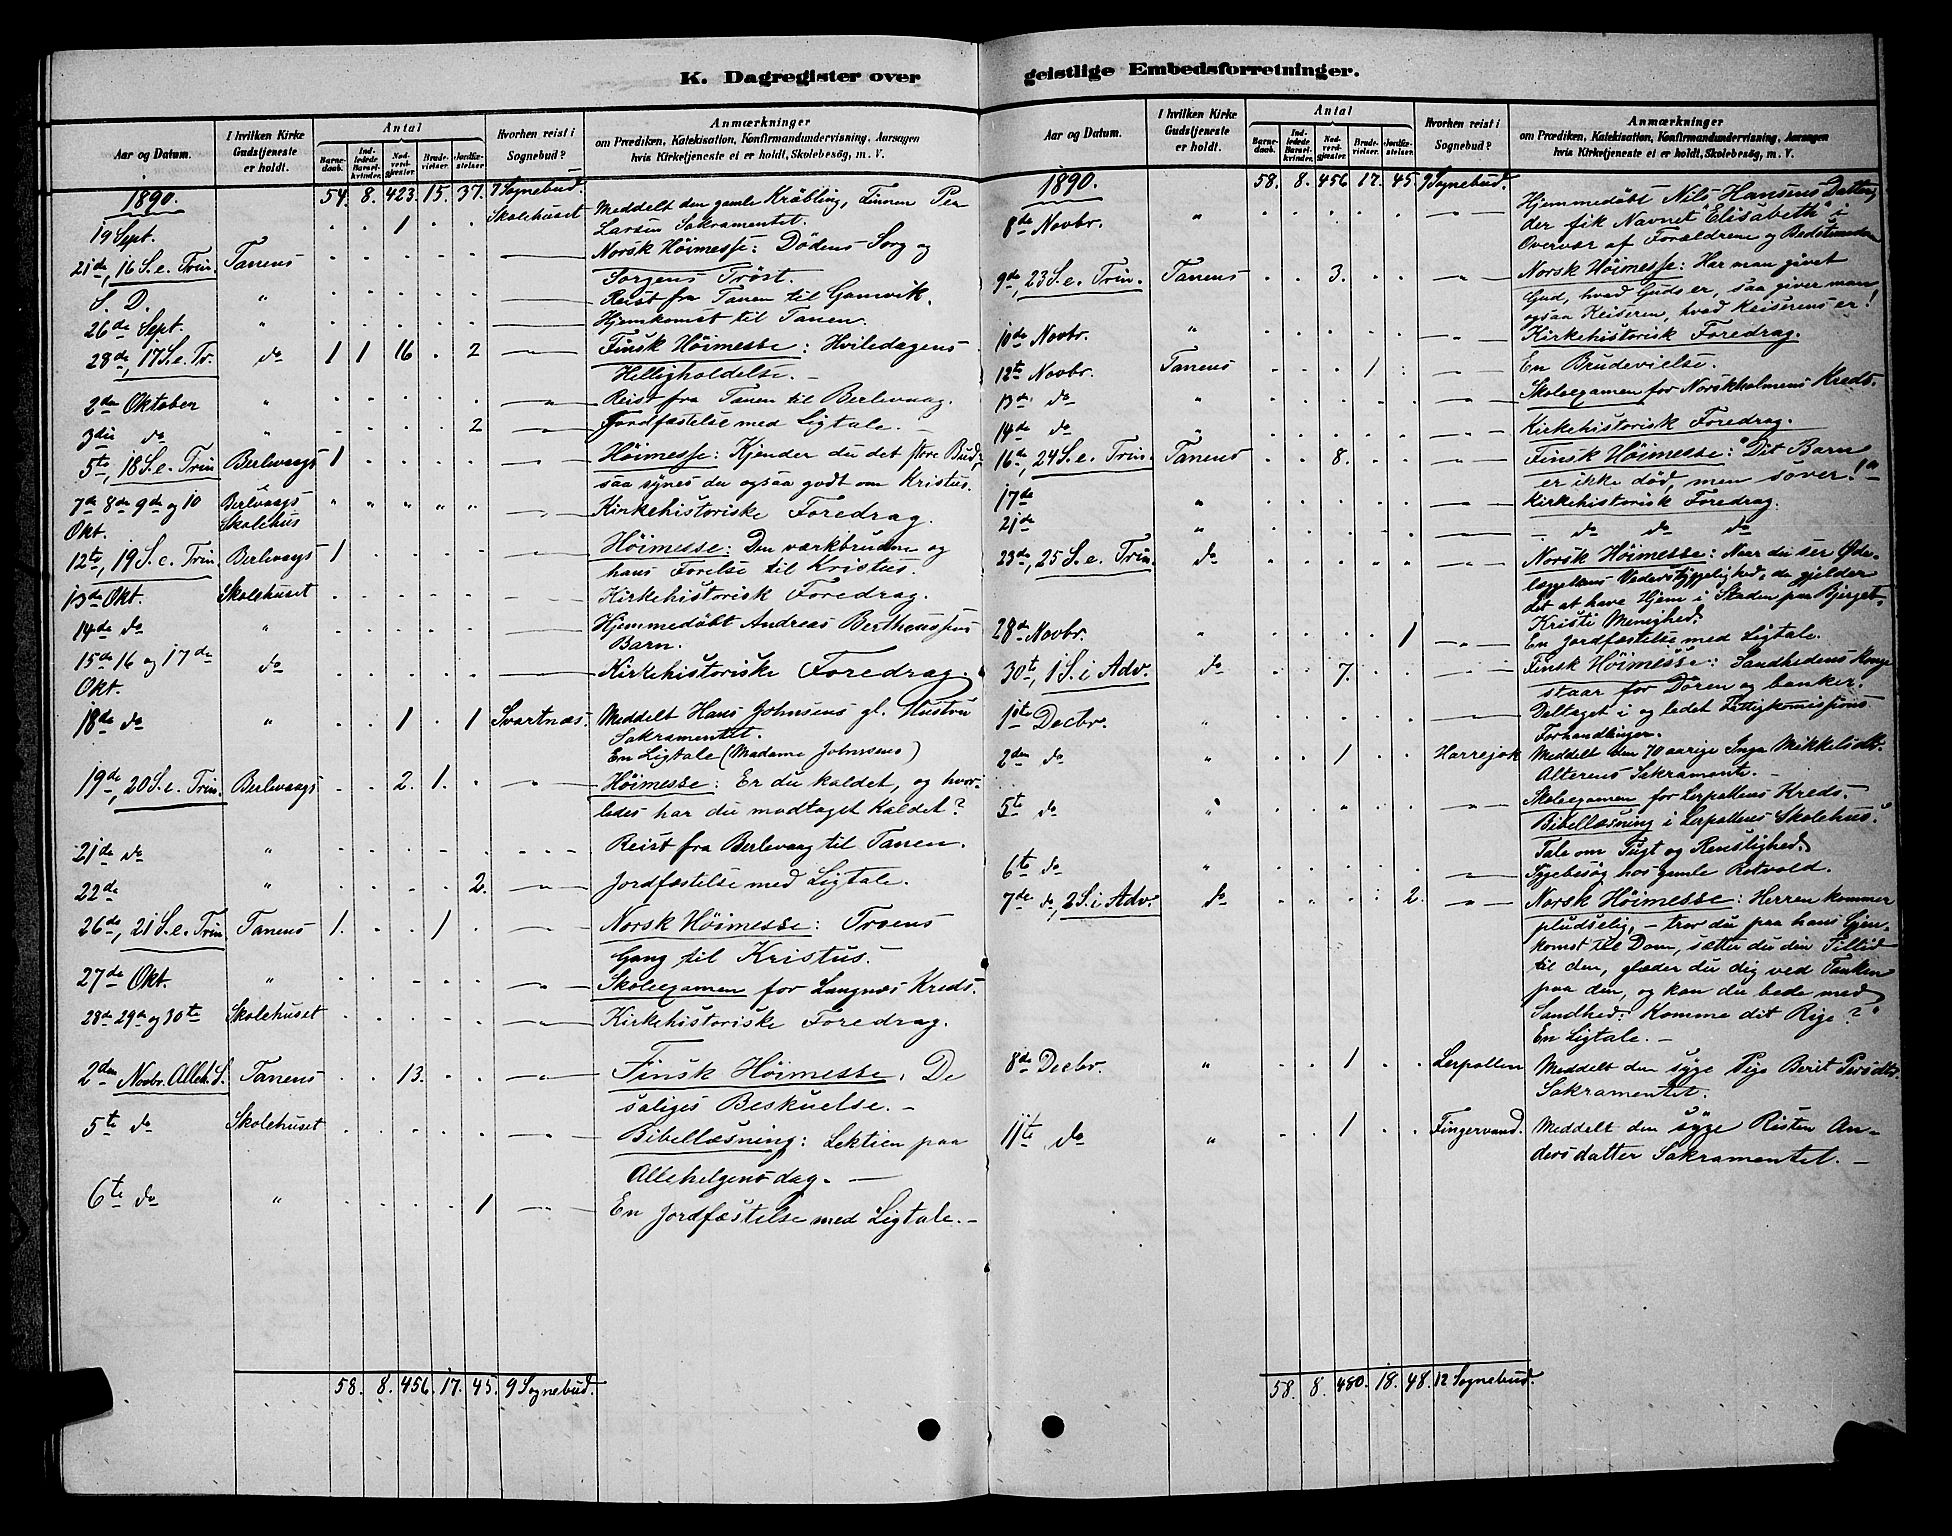 K. Dagregister over
Aar og Datum.
I hvilken Kirke Gudstjeneste er holdt.
Antal
Barnedaab.
Indledede Barselkvinder.
Nadverdgjæster.
Brudevielser.
Jordfæstelser.
Hvorhen reist i Sognebud?
Anmærkninger
om Prædiken, Katekisation, Konfirmandundervisning, Aarsagen
hvis Kirketjeneste ei er holdt, Skolebesøg, m. V.
1890. 54. 8. 423. 15. 37. 7 Sognebud.
19 Sept. 1 Skolehuset Meddelt den gamle Krøbling, Finnen Per
Larsen Sakramentet.
21de, 16 S. e. Trin. Tanens Norsk Höimesse: Dødens Sorg og
Sorgens Tröst.
S. D. " Reist fra Tanen til Gamvik.
26de Sept. " Hjemkomst til Tanen.
28de, 17 S. e. Tr. do 1 1 16 . 2 Finsk Höimesse: Hviledagens
Helligholdelse. –
2den Oktober " Reist fra Tanen til Berlevaag.
3die do " 2 Jordfæstelse med Ligtale. –
5te, 18 S. e. Trin Berlevaags 1 Höimesse: Kjender du det store Bud,
saa synes du ogsaa godt om Kristus.
7de 8de 9de og 10 Berlevaags Kirkehistoriske Foredrag.
Okt. Skolehus
12te, 19 S. e. Trin. Berlevaags 1 Höimesse: Den værkbrudne og
hans Förelse til Kristus.
13de Okt. Skolehuset Kirkehistorisk Foredrag.
14de do " Hjemmedöbt Andreas Bertheussens
Barn.
15de 16 og 17de do Kirkehistoriske Foredrag.
Okt.
18de do " 1 . 1 Svartnæs. Meddelt Hans Johnsens gl. Hustru
Sakramentet.
En Ligtale (Madame Johnsens)
19de, 20 S. e. Trin. Berlevaags 2. 1. Höimesse: Er du kaldet, og hvor-
ledes har du modtaget Kaldet?
21de do " Reist fra Berlevaag til Tanen.
22de " 2. Jordfæstelse med Ligtale.
26de, 21 S. e. Trin. Tanens 1. 1 Norsk Höimesse: Troens
Gang til Kristus.
27de Okt. " Skoleexamen for Langnæs Kreds.
28de 29de og 30te Skolehuset Kirkehistoriske Foredrag.
2den Novbr. Alleh. S. Tanens 13. Finsk Höimesse. De
saliges Beskuelse. –
5te do Skolehuset Bibellæsning: Lektien paa
Allehelgensdag. –
6te do " 1 En Jordfæstelse med Ligtale. –
58. 8. 456. 17. 45. 9 Sognebud.
geistlige Embedsforretninger.
Aar og Datum.
I hvilken Kirke Gudstjeneste er holdt.
Antal
Barnedaab.
Indledede Barselkvinder.
Nadverdgjæster.
Brudevielser.
Jordfæstelser.
Hvorhen reist i Sognebud?
Anmærkninger
om Prædiken, Katekisation, Konfirmandundervisning, Aarsagen
hvis Kirketjeneste ei er holdt, Skolebesøg, m. V.
1890. 58. 8. 456. 17. 45. 9 Sognebud.
8de Novbr. " Hjemmedöbt Nils Hansens Datter,
der fik Navnet "Elisabeth" i
Overvær af Forældrene og Bedstemoderen
9de, 23 S. e. Trin. Tanens 3. Norsk Höimesse: Har man givet
Gud, hvad Guds er, saa giver man
ogsaa Keiseren, hvad Keiserens er!
10de Novbr. " Kirkehistorisk Foredrag.
12te Novbr. Tanens 1 En Brudevielse.
13de do " Skoleexamen for Norskholmens Kreds.
14de do " Kirkehistorisk Foredrag.
16de, 24 S. e. Trin. Tanens 8. Finsk Höimesse: "Dit Barn
er ikke död, men sover!"
17de " Kirkehistorisk Foredrag.
21de " do do do
23de, 25 S. e. Trin. do Norsk Höimesse: Naar du ser Öde-
læggelsens Vederstyggelighed, da gjelder
det at have Hjem i Staden paa Bjerget,
Kristi Menighed.
28de Novbr. " 1 En Jordfæstelse med Ligtale.
30te, 1 S. i Adv. do 7. Finsk Höimesse: Sandhedens Konge
staar for Dören og banker.
1ste Decbr. " Deltaget i og ledet Fattigkomissions
Forhandlinger.
2den do " 1 Harrejok Meddelt den 70 aarige Inga Mikkelsdtr.
Alterens Sakramente. –
5te do " Skoleexamen for Lerpollens Kreds.
Bibellæsning i Lerpollens Skolehus.
Tale om Tugt og Renslighed.
6te do " Sygebesög hos gamle Rotvold.
7de do, 2 S. i Adv. do 2. Norsk Höimesse: Herren kommer
pludselig, – tror du paa hans Gjen-
komst til Dom, sætter du din Tillid
til den, glæder du dig ved Tanken
paa den, og kan du bede med
Sandhed: Komme dit Rige?"
En Ligtale. –
8de Decbr. " 1 Lerpollen Meddelt den syge Pige Berit Persdtr.
Sakramentet.
11te do " 1 Fingervand. Meddelt den syge Risten An-
dersdatter Sakramentet. –
58. 8. 480. 18. 48. 12 Sognebud.